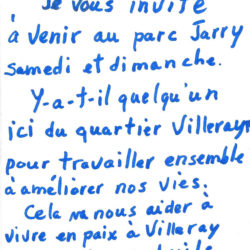 Je vous invite
à venir au parc Jarry
samedi et dimanche.
Y-a-t-il quelqu'un
ici du quartier Villeray
pour travailler ensemble
à améliorer nos vies.
Cela va nous aider à
vivre en paix à Villeray